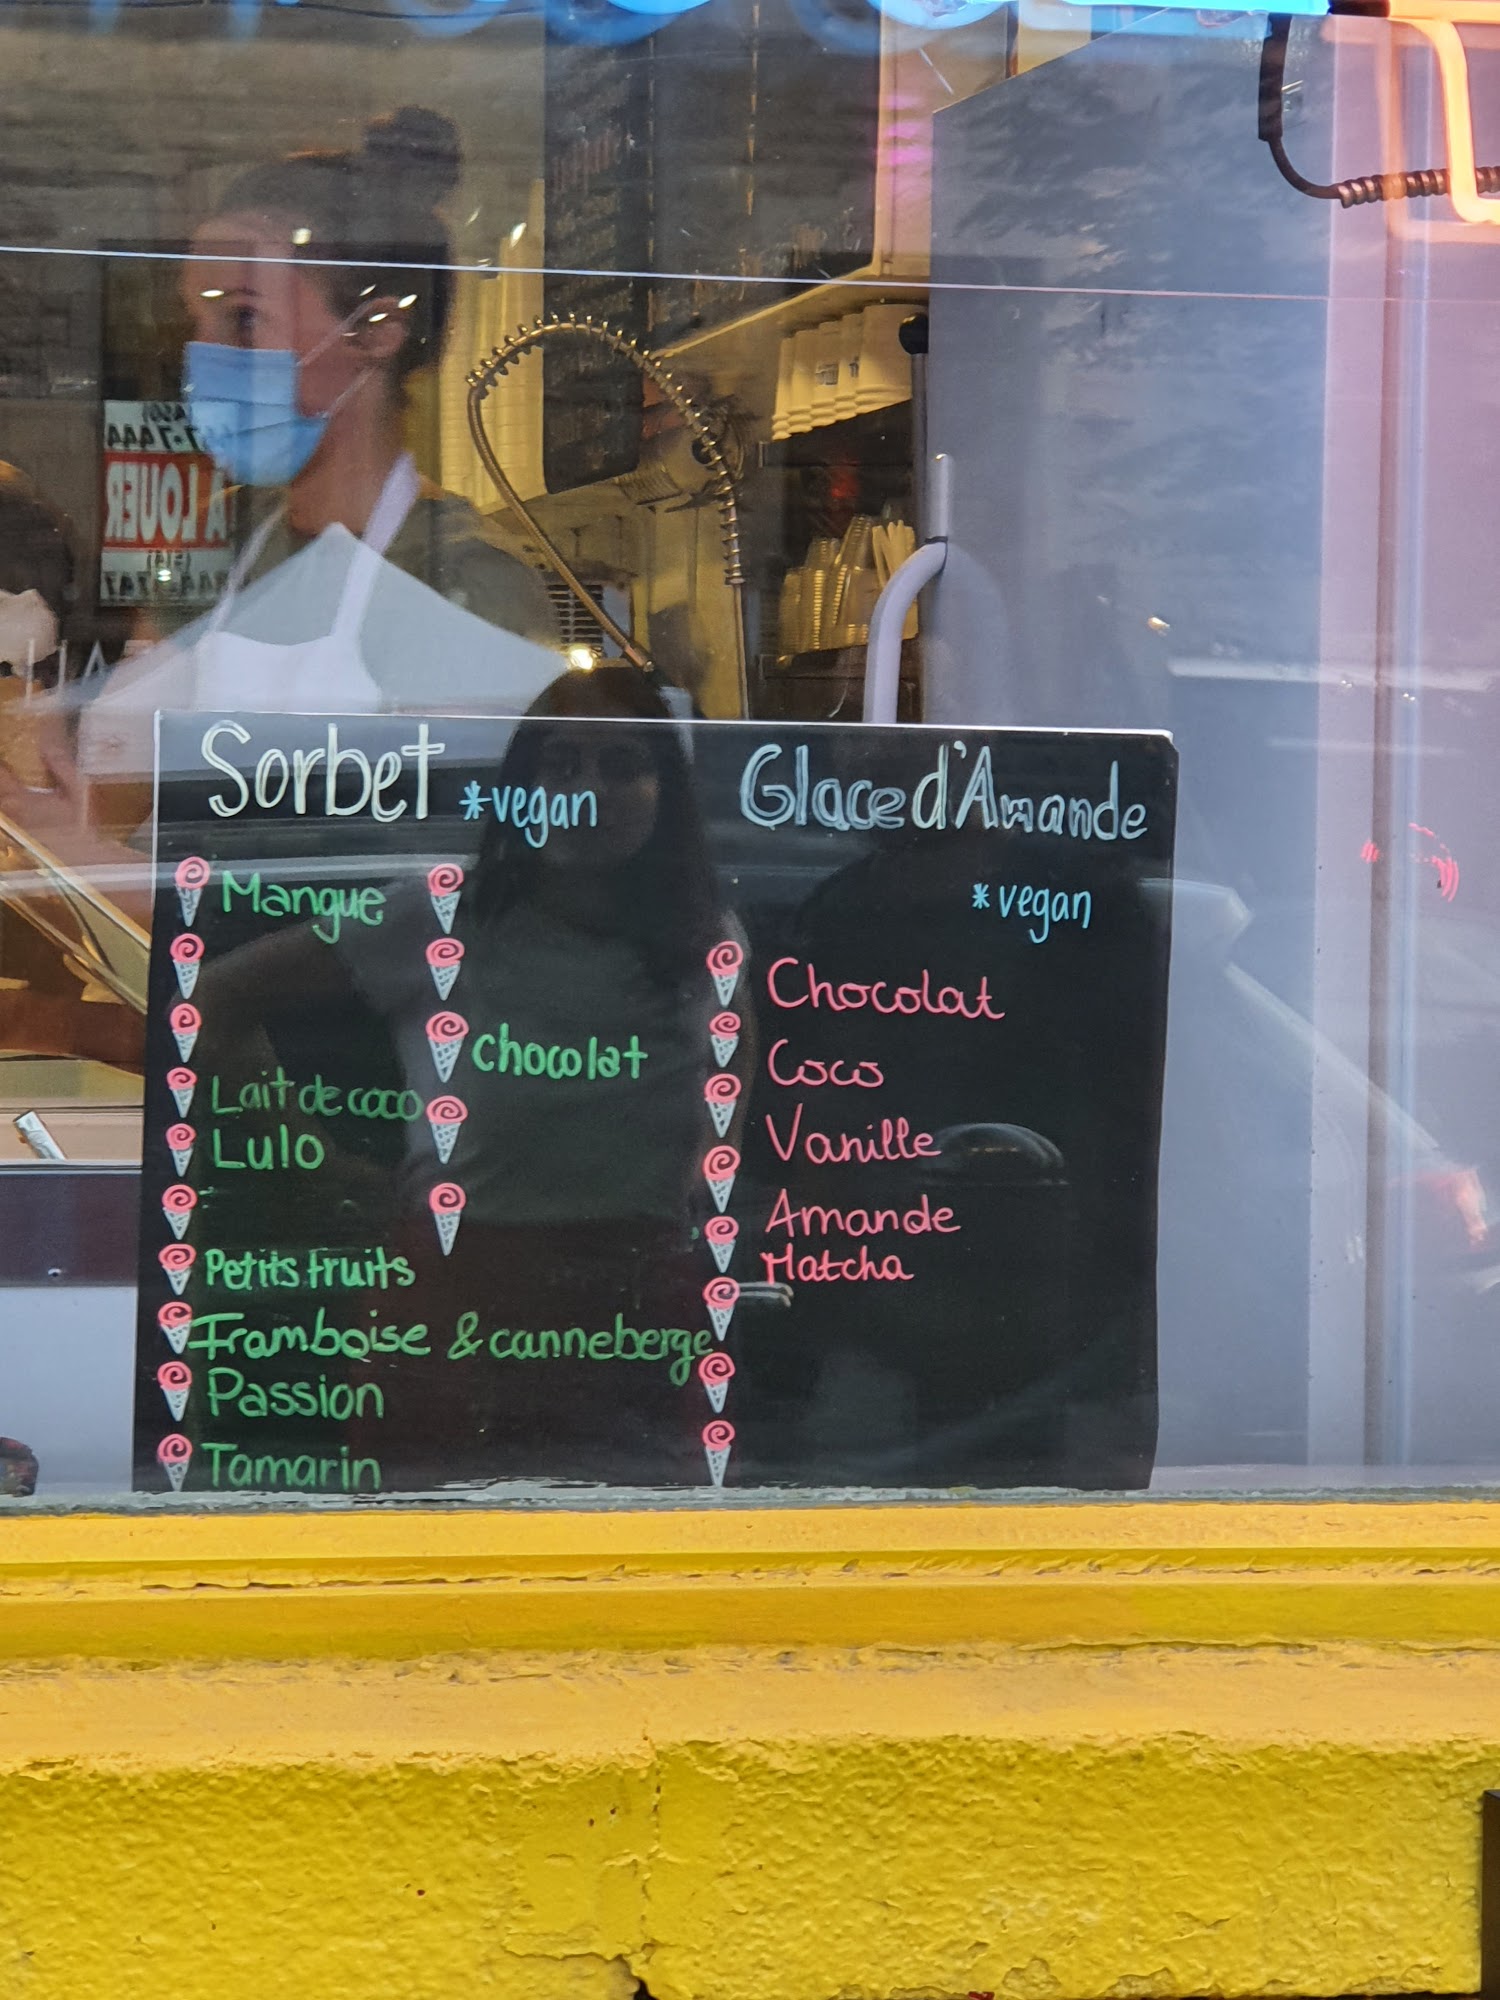 A LOUER
Sorbet *vegan
Mangue
chocolat
Lait de coco
Lulo
Petits fruits
Framboise & canneberge
Passion
Tamarin
Glace d'Amande
*vegan
Chocolat
Coco
Vanille
Amande
Matcha